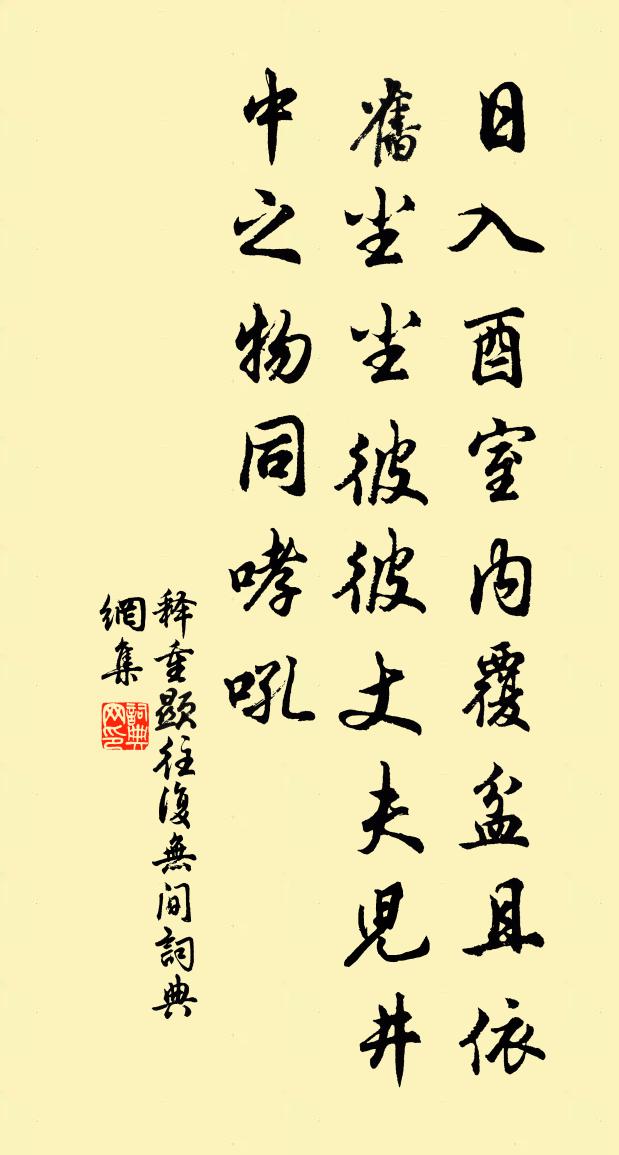 日入酉室内覆盆且依
舊坐坐彼彼丈夫兒井
中之物同哮吼
释重顯往復無间詞典
網集
詞典網印